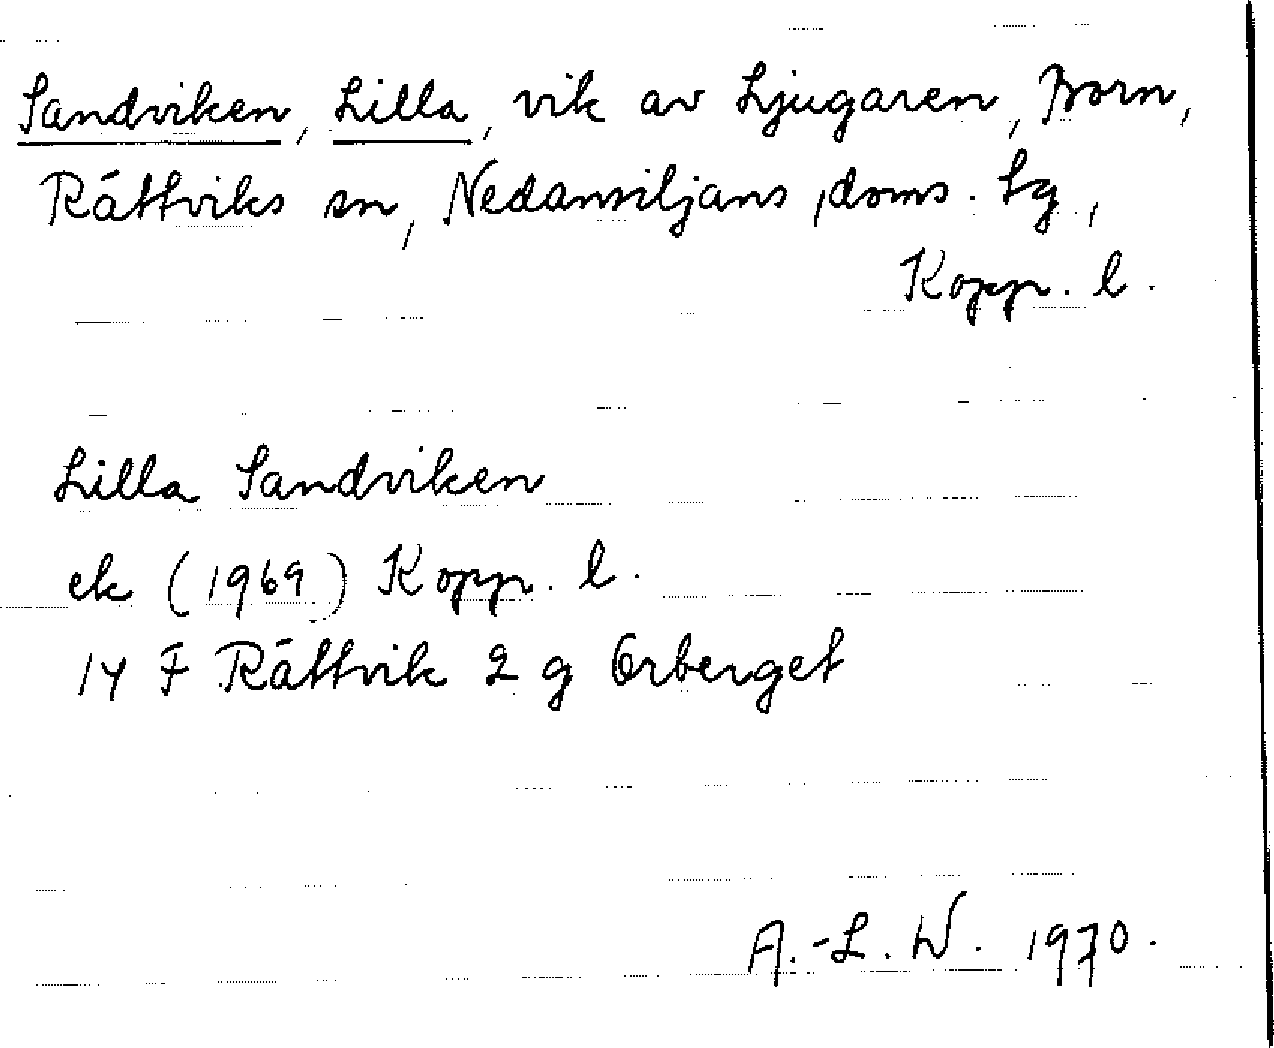 Sandviken, Lilla, vik av Ljugaren, Born,
Rättviks sn, Nedansiljans doms. tg,
Kopp. l.
Lilla Sandviken
ek (1969) Kopp. l.
14 F Rättvik 2 g Orberget
A.-L. W. 1970.